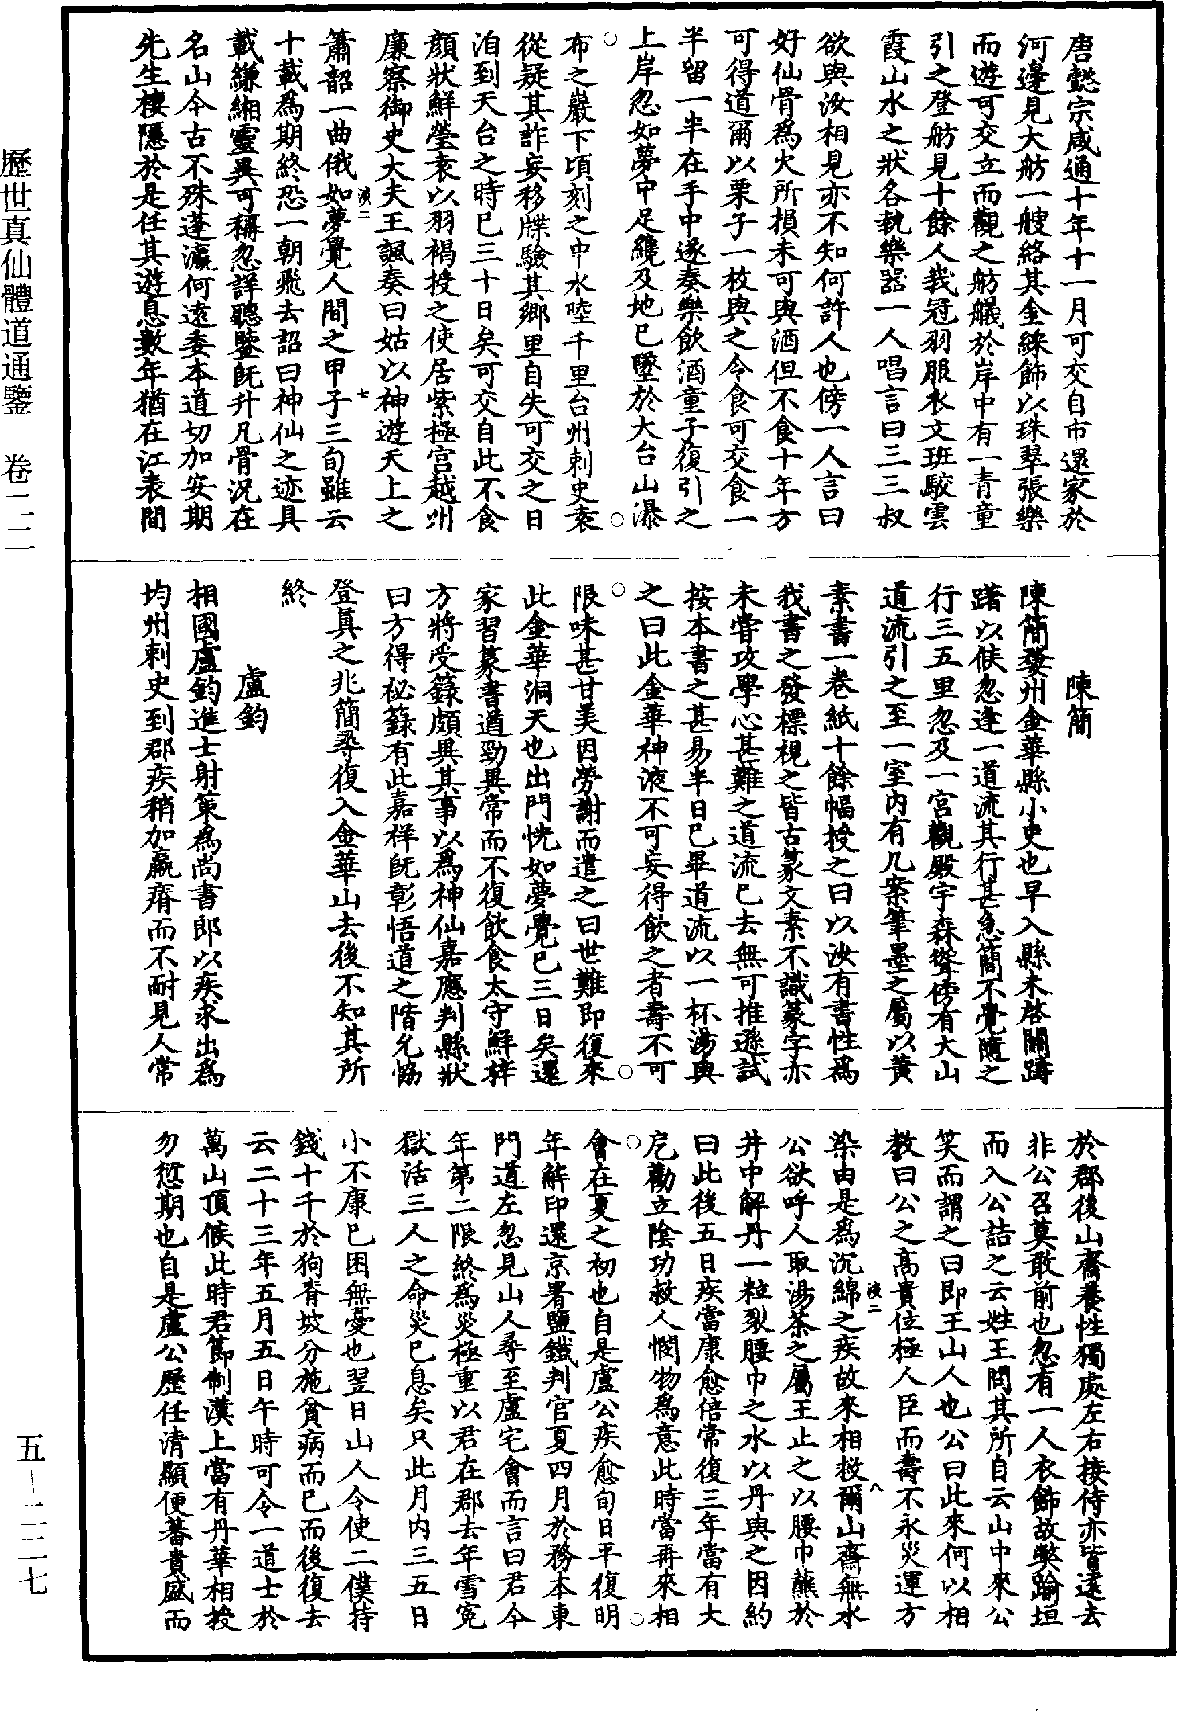 唐懿宗咸通十年十一月可交自市還家於
河邊見大舫一艘絡其金綵飾以珠翠張樂
而遊可交立而觀之舫艤於岸中有一青童
引之登舫見十餘人峩冠羽服衣文班駮雲
霞山水之狀各執樂器一人唱言曰三三叔
欲與汝相見亦不知何許人也傍一人言曰
好仙骨為火所損未可與酒但不食十年方
可得道爾以栗子一枚與之令食可交食一
半留一半在手中遂奏樂飲酒童子復引之
上岸忽如夢中足纔及地已墜於天台山瀑
布之巖下頃刻之中水陸千里台州刺史袁
從疑其詐妄移牒驗其鄉里自失可交之日
洎到天台之時已三十日矣可交自此不食
顏狀鮮瑩袁以羽褐授之使居紫極宮越州
廉察御史大夫王諷奏曰姑以神遊天上之
簫韶一曲俄如夢覺人間之甲子三旬雖云
十載為期終恐一朝飛去詔曰神仙之迹具
載縑緗靈異可稱忽詳聽墍既升凡骨況在
名山今古不殊蓬瀛何遠委本道切加安期
先生棲隱於是任其遊息數年猶在江表間
陳簡
陳簡婺州金華縣小史也早入縣未啓關躊
躇以候忽逢一道流其行甚急簡不覺隨之
行三五里忽及一宮觀殿宇森聳傍有大山
道流引之至一室內有几案筆墨之屬以黃
素書一卷紙十餘幅授之曰以汝有書性為
我書之發標視之皆古篆文素不識篆字亦
未嘗攻學心甚難之道流已去無可推遜試
按本書之甚易半日已畢道流以一杯湯與
之曰此金華神液不可妄得飲之者壽不可
限味甚甘美因勞謝而遣之曰世難即復來
此金華洞天也出門恍如夢覺已三日矣還
家習篆書遒勁異常而不復飲食太守鮮祥
方將受籙頗異其事以為神仙嘉應判縣狀
曰方得祕籙有此嘉祥既彰悟道之階允協
登真之兆簡尋復入金華山去後不知其所
終
盧鈞
相國盧鈞進士射策為尚書郎以疾求出為
均州刺史到郡疾稍加羸瘠而不耐見人常
於郡後山齋養性獨處左右接侍亦皆遠去
非公召莫敢前也忽有一人衣飾故弊踰垣
而入公詰之云姓王問其所自云山中來公
笑而謂之曰即王山人也公曰此來何以相
教曰公之高貴位極人臣而壽不永災運方
染由是為沉綿之疾故來相救爾山齋無水
公欲呼人取湯茶之屬王止之以腰巾蘸於
井中解丹一粒裂腰巾之水以丹與之因約
曰此後五日疾當康愈倍常復三年當有大
戹勸立陰功救人憫物為意此時當再來相
會在夏之初也自是盧公疾愈旬日平復明
年解印還京署鹽鐵判官夏四月於務本東
門道左忽見山人尋至盧宅會而言曰君今
年第二限終為災極重以君在郡去年雪冤
獄活三人之命災已息矣只此月內三五日
小不康已困無憂也翌日山人令使二僕持
錢十千於狗脊坡分施貧病而已而後復去
云二十三年五月五日午時可令一道士於
萬山頂候此時君節制漢上當有丹華相授
勿愆期也自是盧公歷任清顯便蕃貴盛而
歷世真仙體道通鑒 卷二二
五-二二七